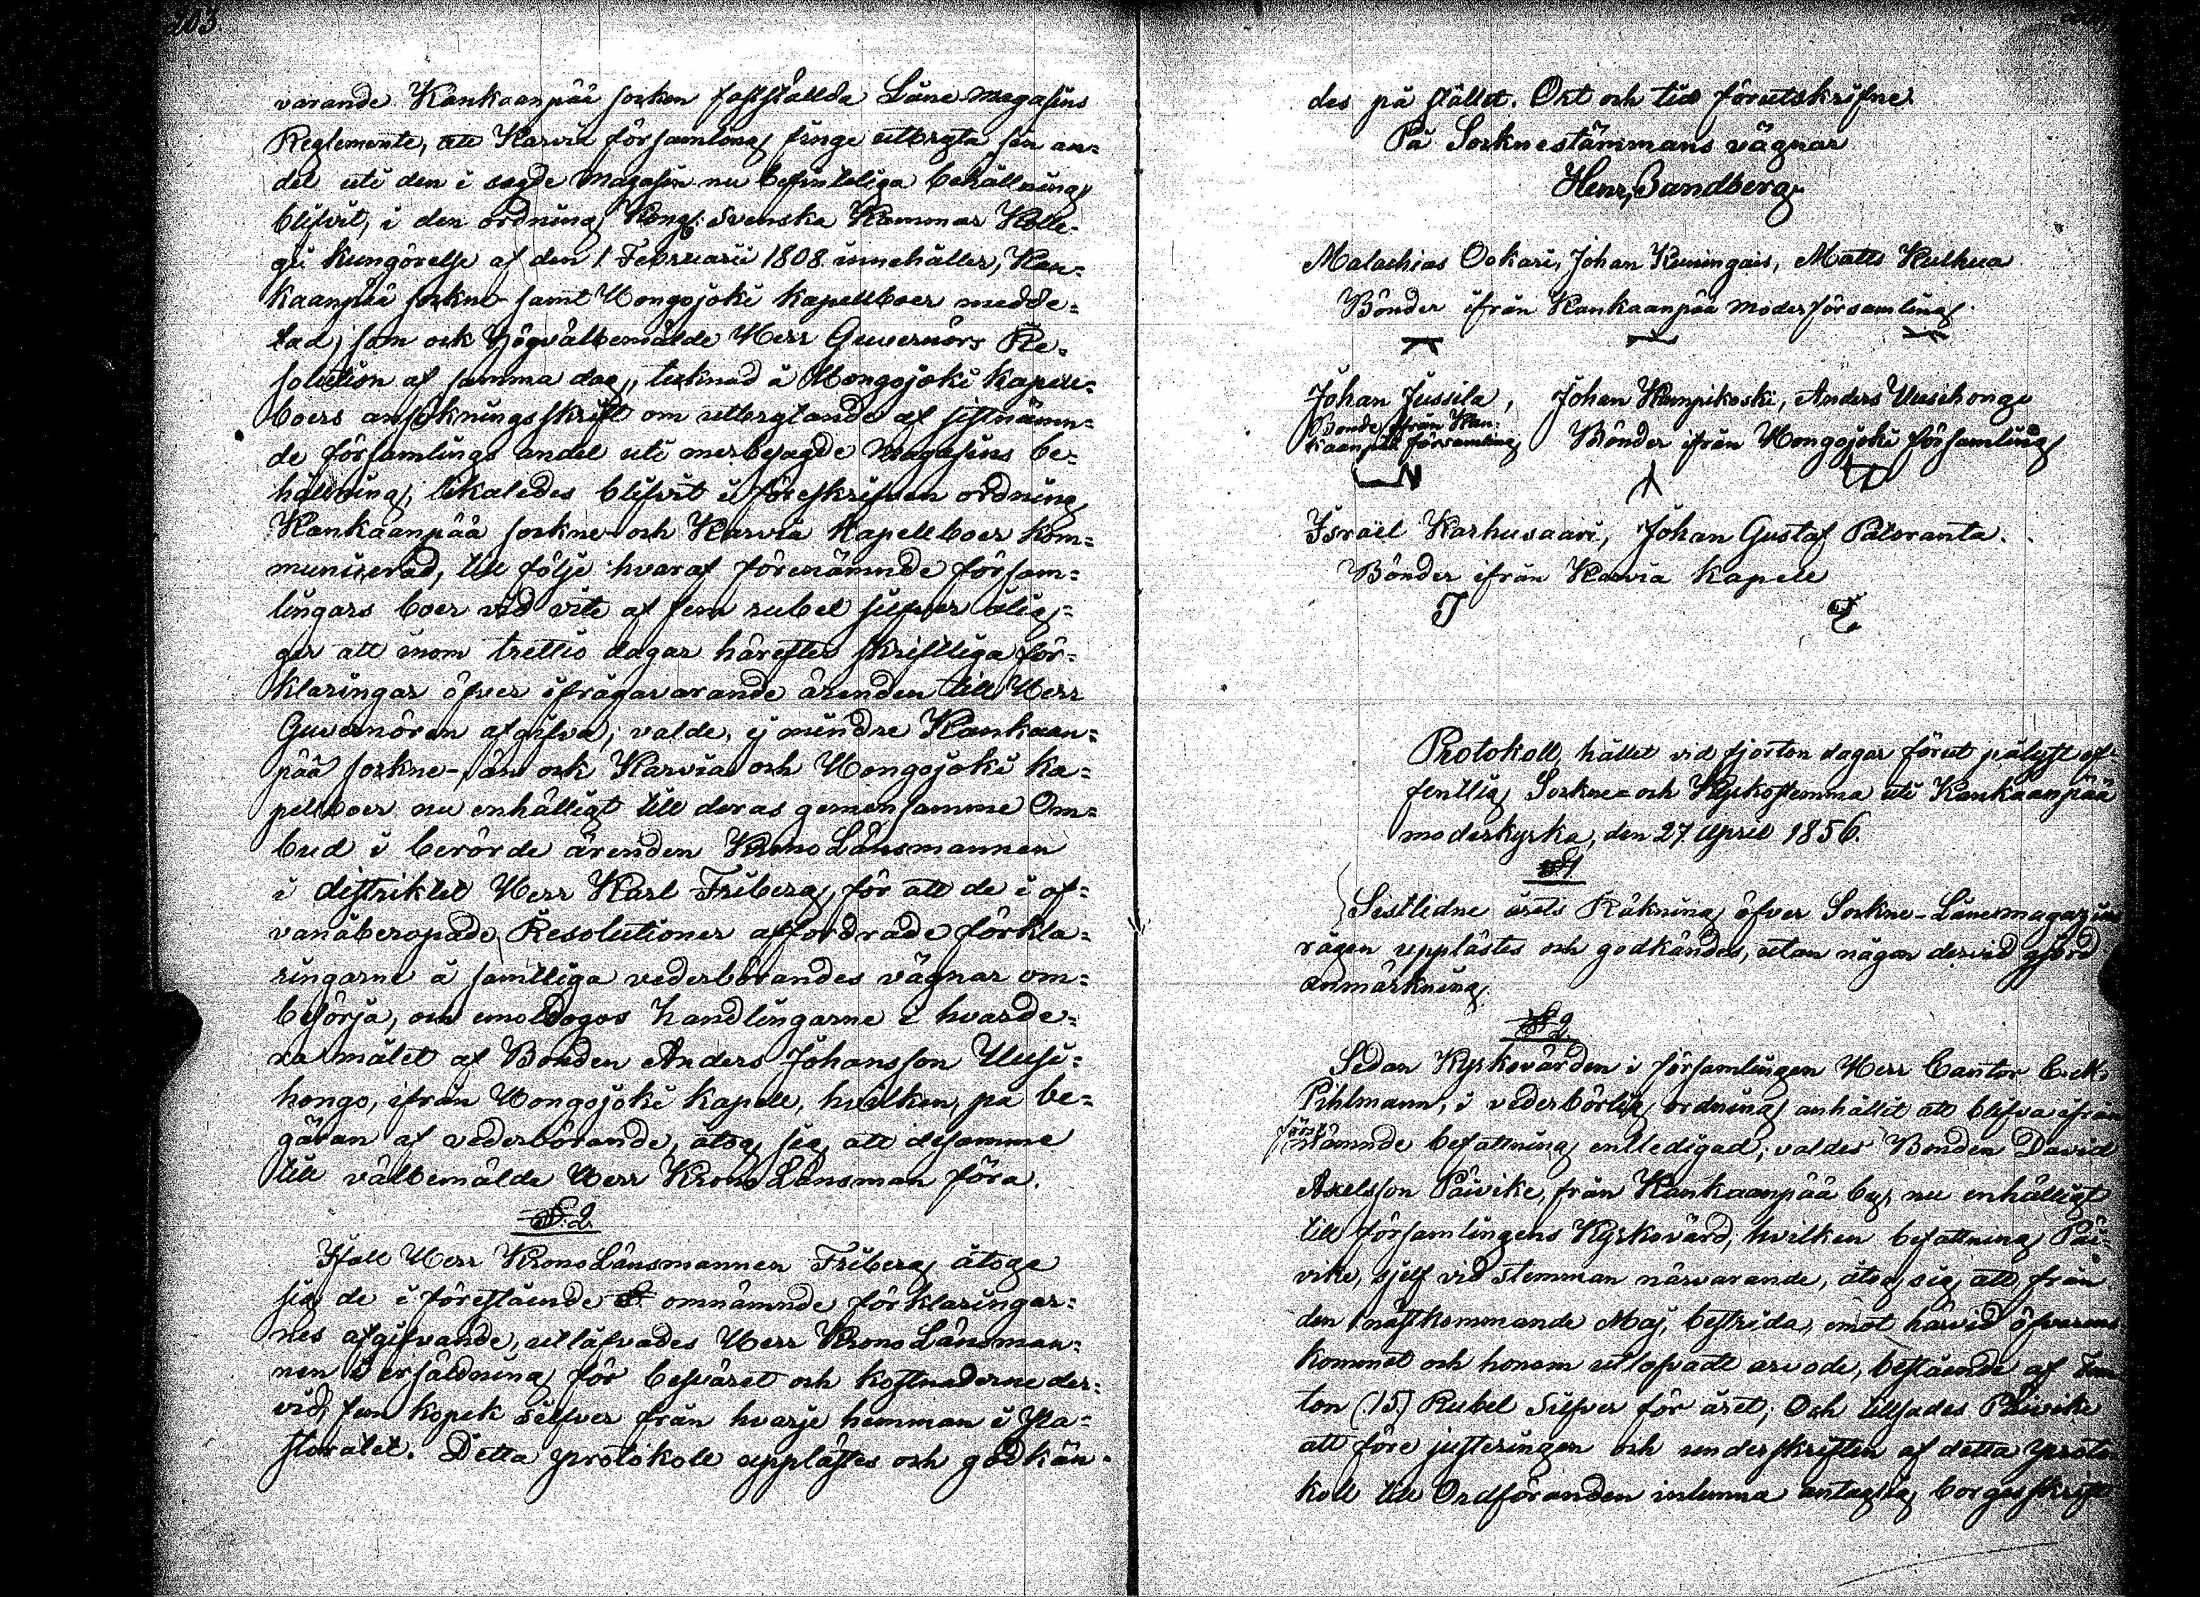 203.
varande Kankaanpää sorken fastställda Låne magasins
Reglemente, att Karvia församling finge utbryta sin an=
del uti den i sagde Magasin nu befinteliga behållning,
blifvit, i den ordning Kongl. Svenska Kammar Kolle-
gii kungörelse af den 1 Februarii 1808 innehåller, Kan-
kaanpää sockne- samt Hongojoki kapellboer medde-
lad; som ock Högvälbemälde Herr Guvernörs Re-
solution af samma dag, tecknad å Hongojoki kapell-
boers ansökningsskrift om utbrytande af sistnämn-
de församlings andel uti merbesagde Magasins be-
hållning, likaledes blifvit i föreskrifven ordning
Kankaanpää sockne- och Karvia Kapellboer kom-
municerad, till följe hvaraf förenämnde försam-
lingars boer vid vite af fem rubel silfver ålig-
ger att inom trettio dagar härefter skriftliga för-
klaringar öfver ifrågavarande ärenden till Herr
Guvernören afgifva; valde, ej mindre Kankaan-
pää sockne-, än ock Karvia och Hongojoki ka-
pellboer nu enhälligt till deras gemensamme Om-
bud i berörde ärenden KronoLänsmannen
i distriktet Herr Karl Friberg, för att de i of-
vanåberopade Resolutioner affordrade förkla-
ringarne å samtliga vederbörandes vägnar om-
besörja, och emottogos handlingarne i hvarde-
ra målet af Bonden Anders Johansson Uusi-
hongo, ifrån Hongojoki kapell, hvilken, på be-
gäran af vederbörande, åtog sig att desamme
till välbemälde Herr Krono Länsman föra.
§. 2.
Ifall Herr KronoLänsmannen Friberg åtoge
sig de i förestående §. omnämnde förklaringar-
nes afgifvande, utlåfvades Herr Krono Länsman-
nen i ersättning för besväret och kostnaderne der-
vid, fem kopek silfver från hvarje hemman i Pa-
storatet. Detta protokoll upplästes och godkän-
des på stället. Ort och tid förutskrifne.
På Socknestämmans vägnar
Henr, Sandberg
Malachias Ockari, Johan Kuningais, Matts Kulhua
Bönder ifrån Kankaanpää moderförsamling.
Johan Jussila, Johan Kampikoski, Anders Uusihongo
Bonde ifrån Kan-
kaanpää församling Bönder ifrån Hongojoki församling
Israël Karhusaari, Johan Gustaf Paloranta.
Bönder ifrån Karvia Kapell
Protokoll, hållet vid fjorton dagar förut pålyst of-
fentlig Sockne- och Kyrkostemma uti Kankaanpää
moderkyrka, den 27. April 1856.
§ 1.
Sistlidne årets Räkning öfver Sockne-Lånemagazins
rågen upplästes och godkändes, utan någon dervid gjord
anmärkning.
§ 2
Sedan Kyrkovärden i församlingen Herr Cantor C. M.
Pihlmann, i vederbörlig ordning anhållit att blifva ifrån
först
nämnde befattning entledigad; valdes Bonden David
Axelsson Päivike, från Kankaanpää by, nu enhälligt
till församlingens Kyrkovärd, hvilken befattning Päi-
vike, sjelf vid stemman närvarande, åtog sig att från
den 1 nästkommande Maj, bestrida, emot härvid öfverens-
kommet och honom utlofvadt arvode, bestående af Fem
ton (15.) Rubel Silfver för året; Och tillsades Päivike
att före justeringen och underskriften af detta proto-
koll till Ordföranden inlemna antaglig borgesskrift